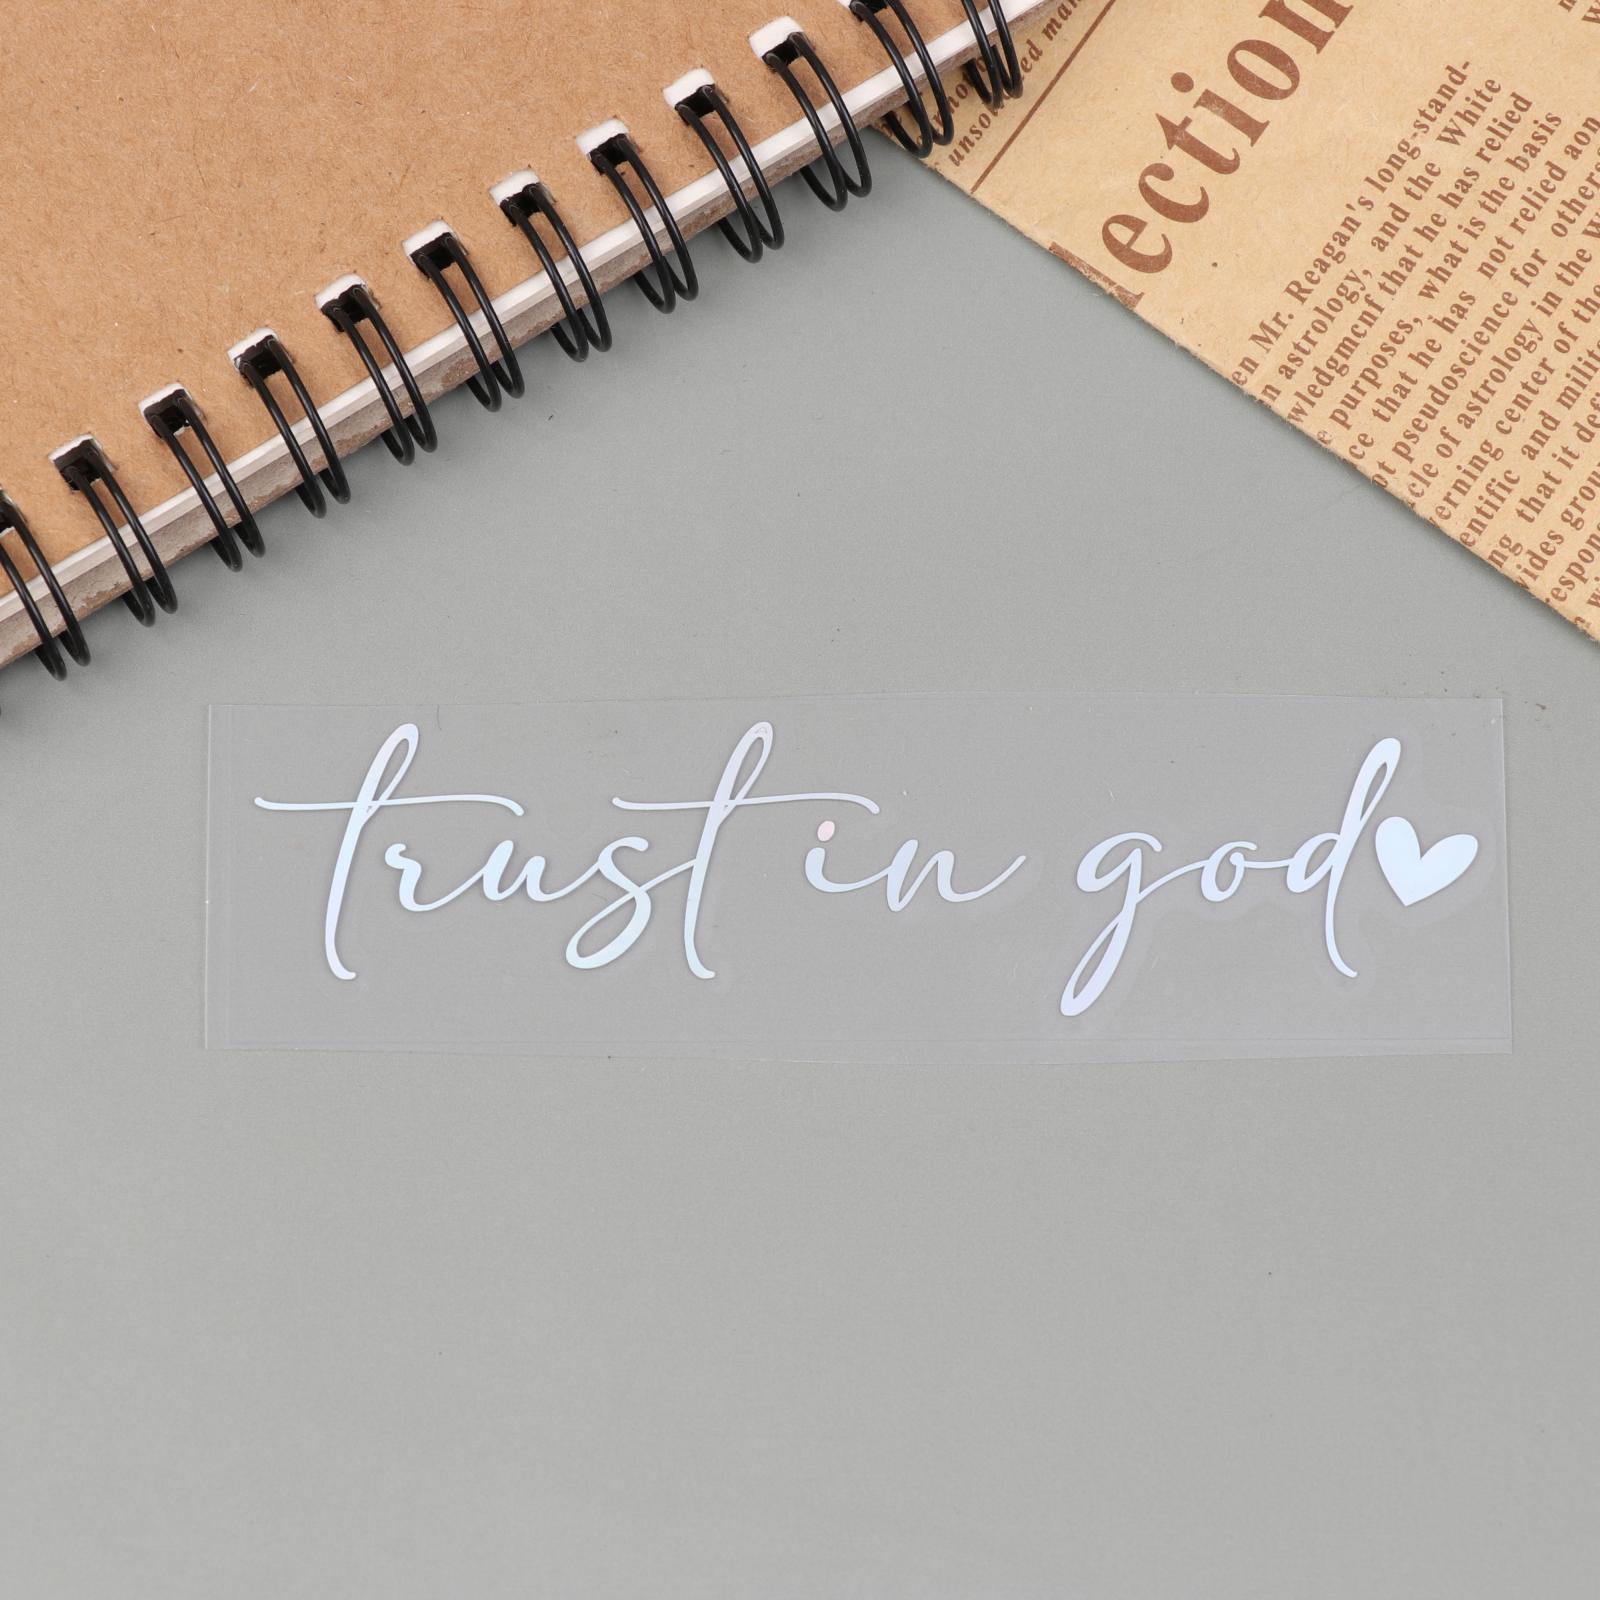 lection
unso
ed man
en Mr. Reagan's long-stand-
n astrology, and the White
wledgmcnf that he has relied
purposes, what is the basis
ce that he has not relied aon
ot pseudoscience for others
cle of astrology in the W
erning center of the
entific and milit
ng that it def
vides grou
respon
trust in god